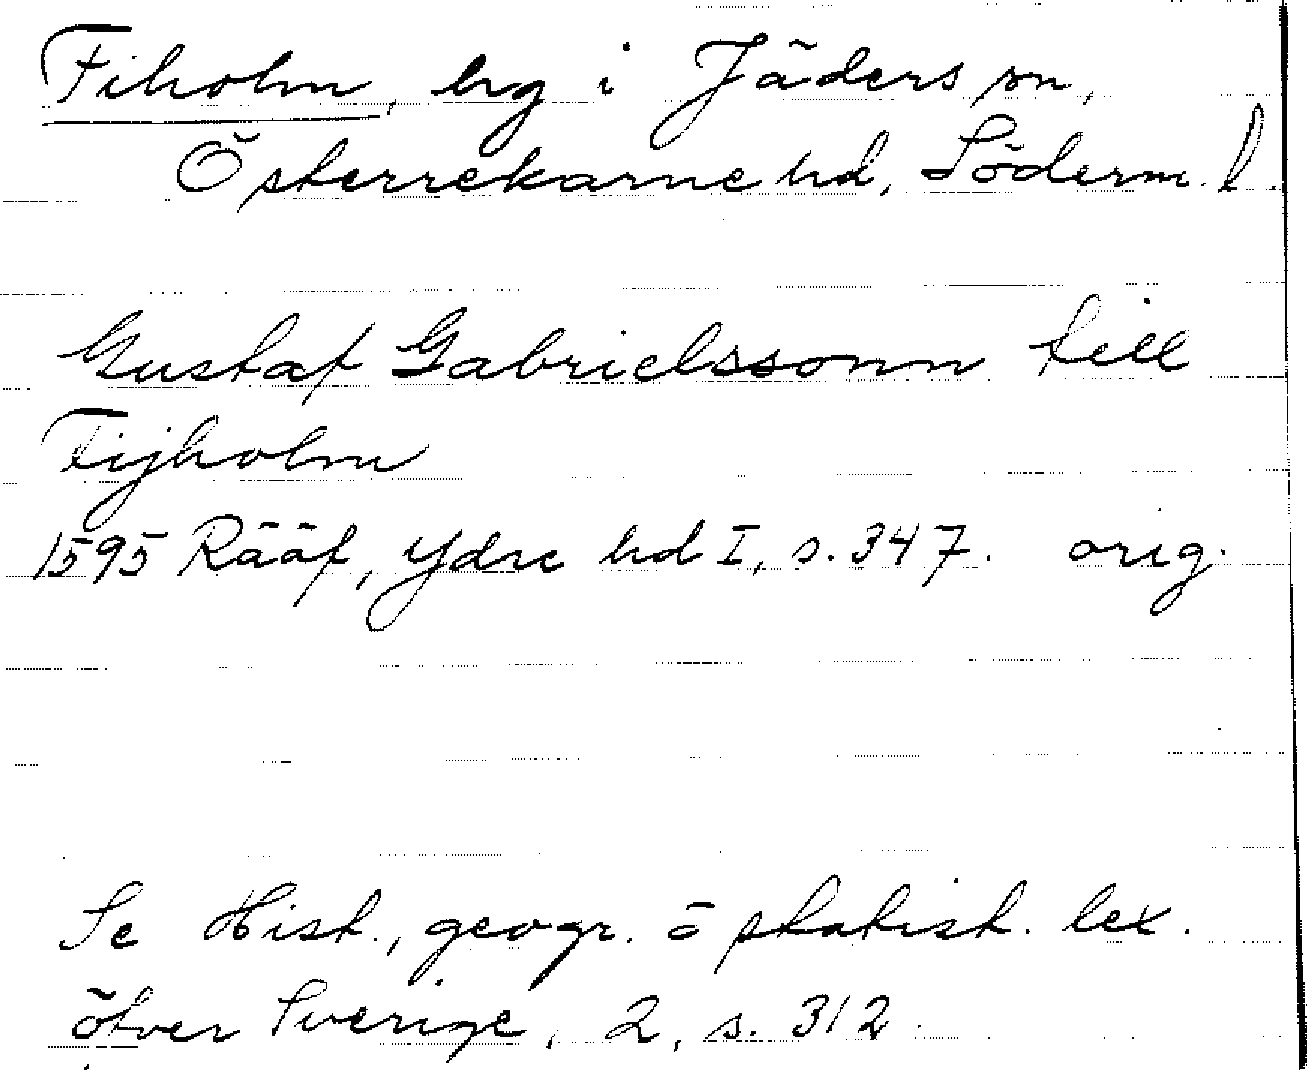 Fiholm, hrg i Jäders sn,
Österrekarne hd, Söderm. l.
Gustaf Gabrielssonn till
Fijholm
1595 Rääf, Ydre hd I, s. 347. orig.
Se Hist., geogr. o statist. lex.
över Sverige, 2, s. 312.